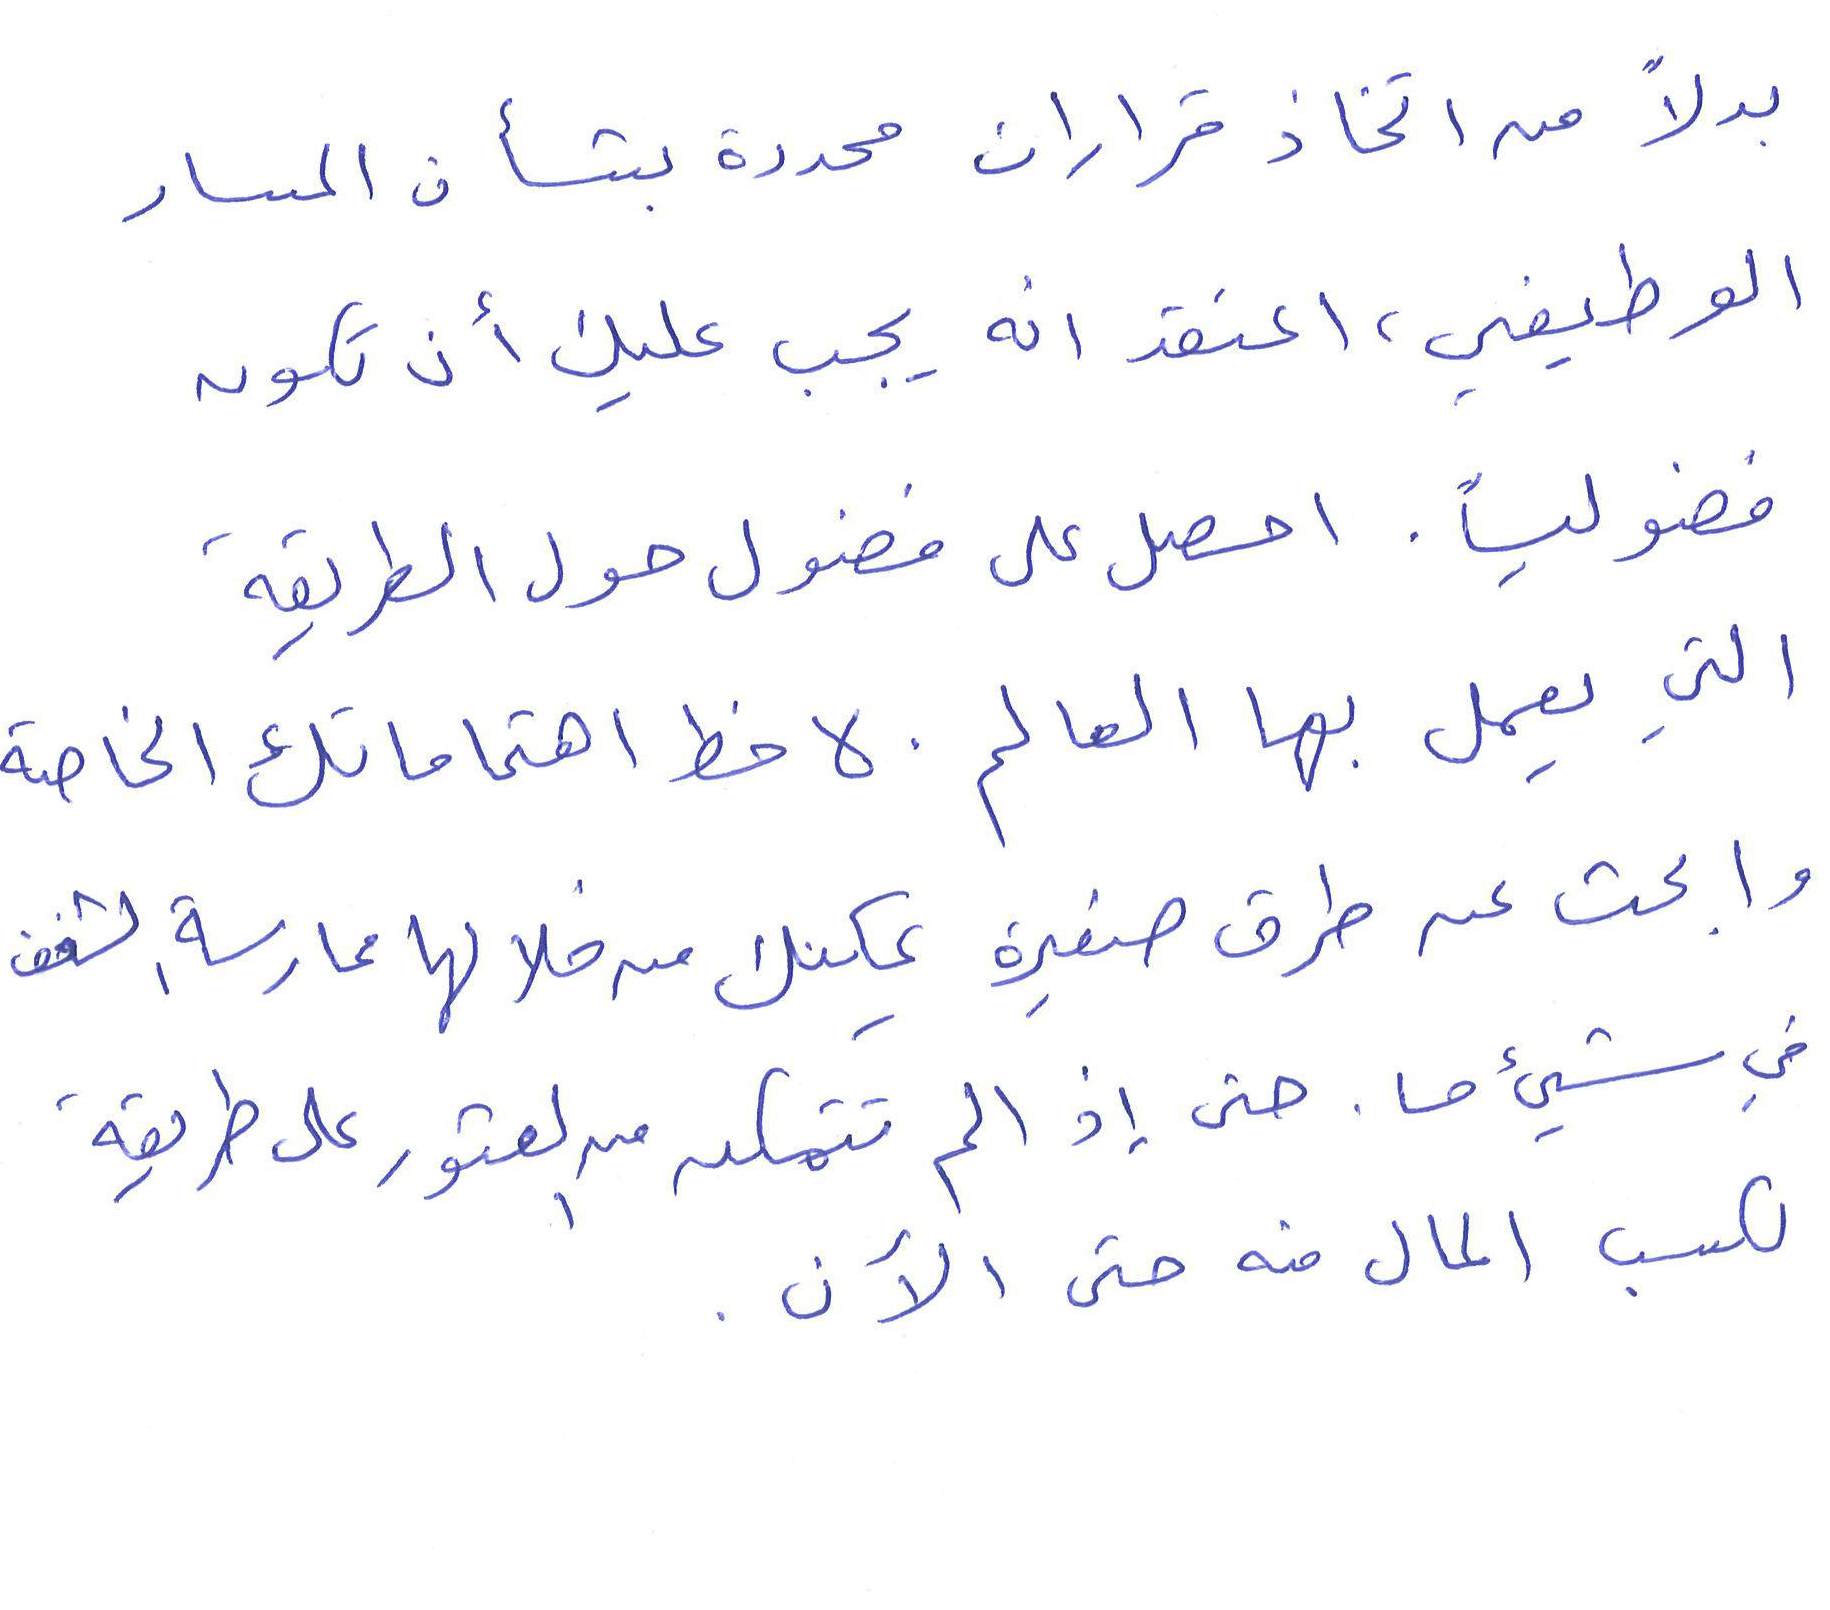 بدلاً من اتخاذ قرارات محددة بشأن المسار
الوظيفي، اعتقد انه يجب عليك أن تكون
فضولياً. احصل على فضول حول الطريقة
التي يعمل بها العالم. لاحظ اهتماماتك الخاصة
وابحث عن طرق صغيرة يمكنك من خلالها ممارسة الشغف
في شيئ ما. حتى إذا لم تتمكن من العثور على طريقة
لكسب المال منه حتى الآن.